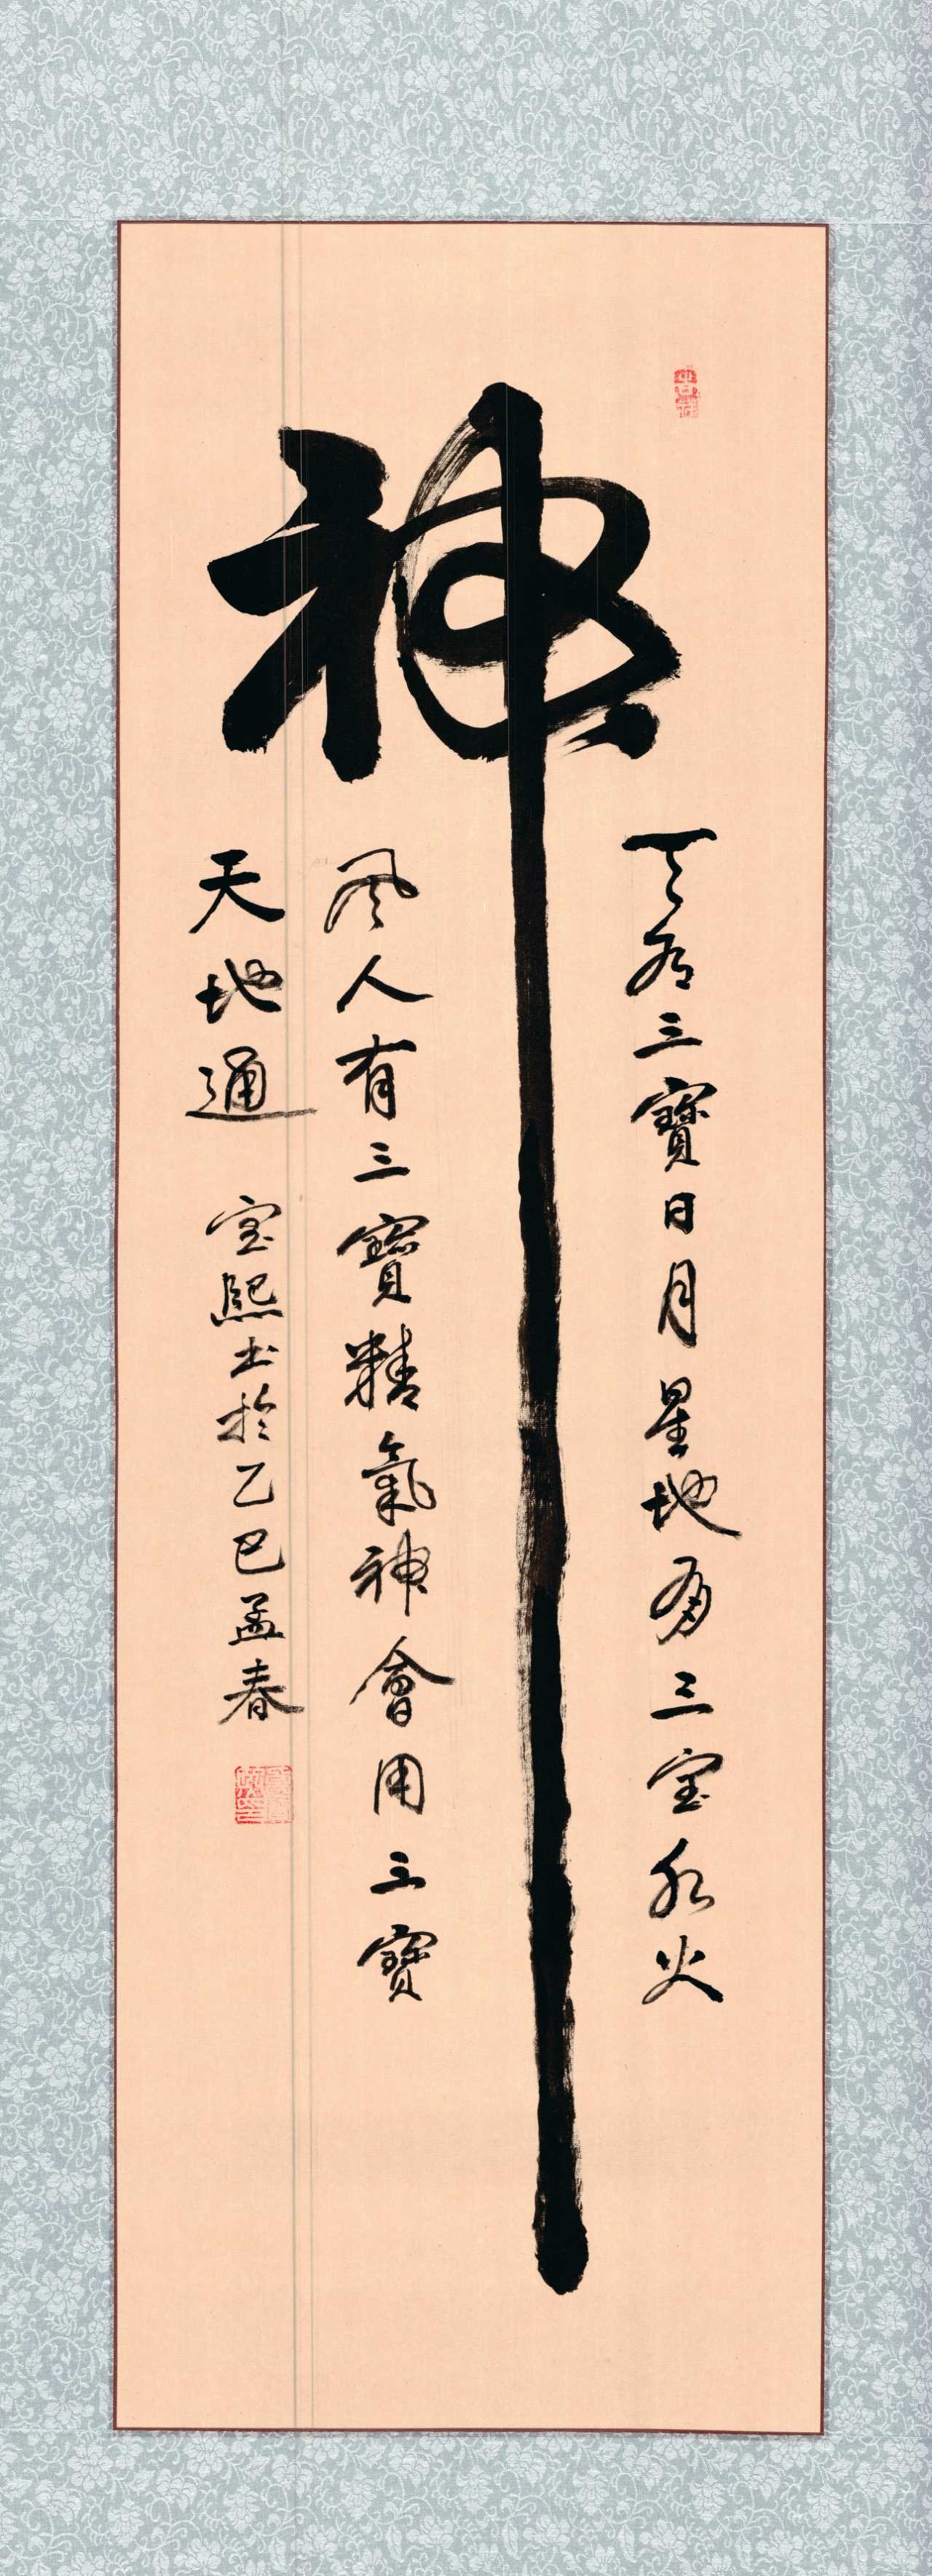 神
天有三寶日月星地有三宝水火
風人有三寶精氣神會用三寶
天地通
宝熙书於乙巳孟春